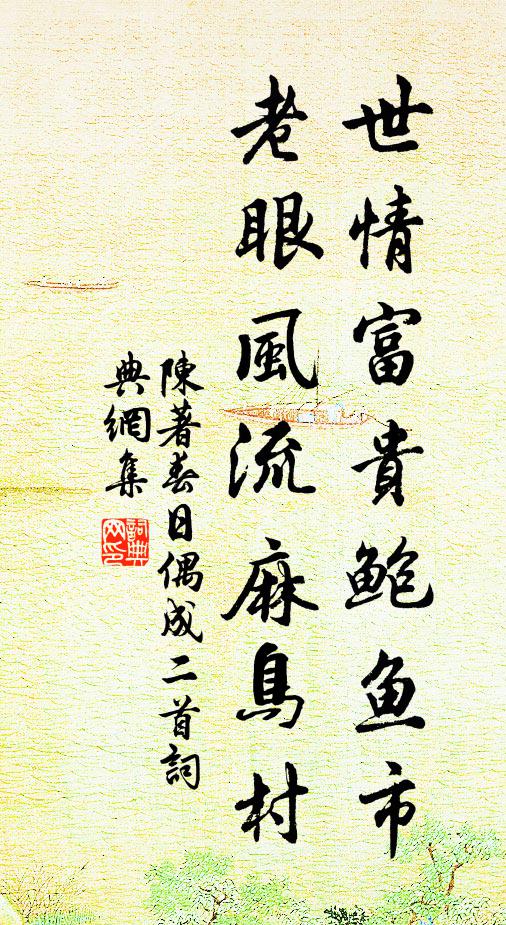 世情富貴鮑魚市
老眼風流麻鳥村
陳著春日偶成二首詞
典網集
詞典
网印